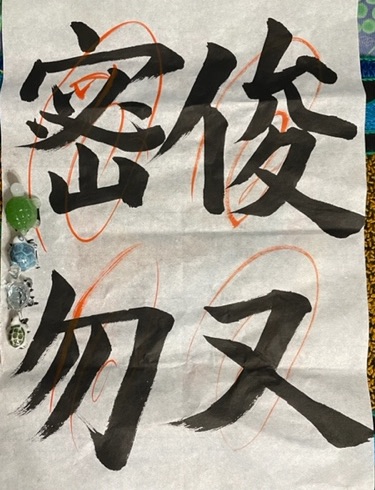 俊又
密勿